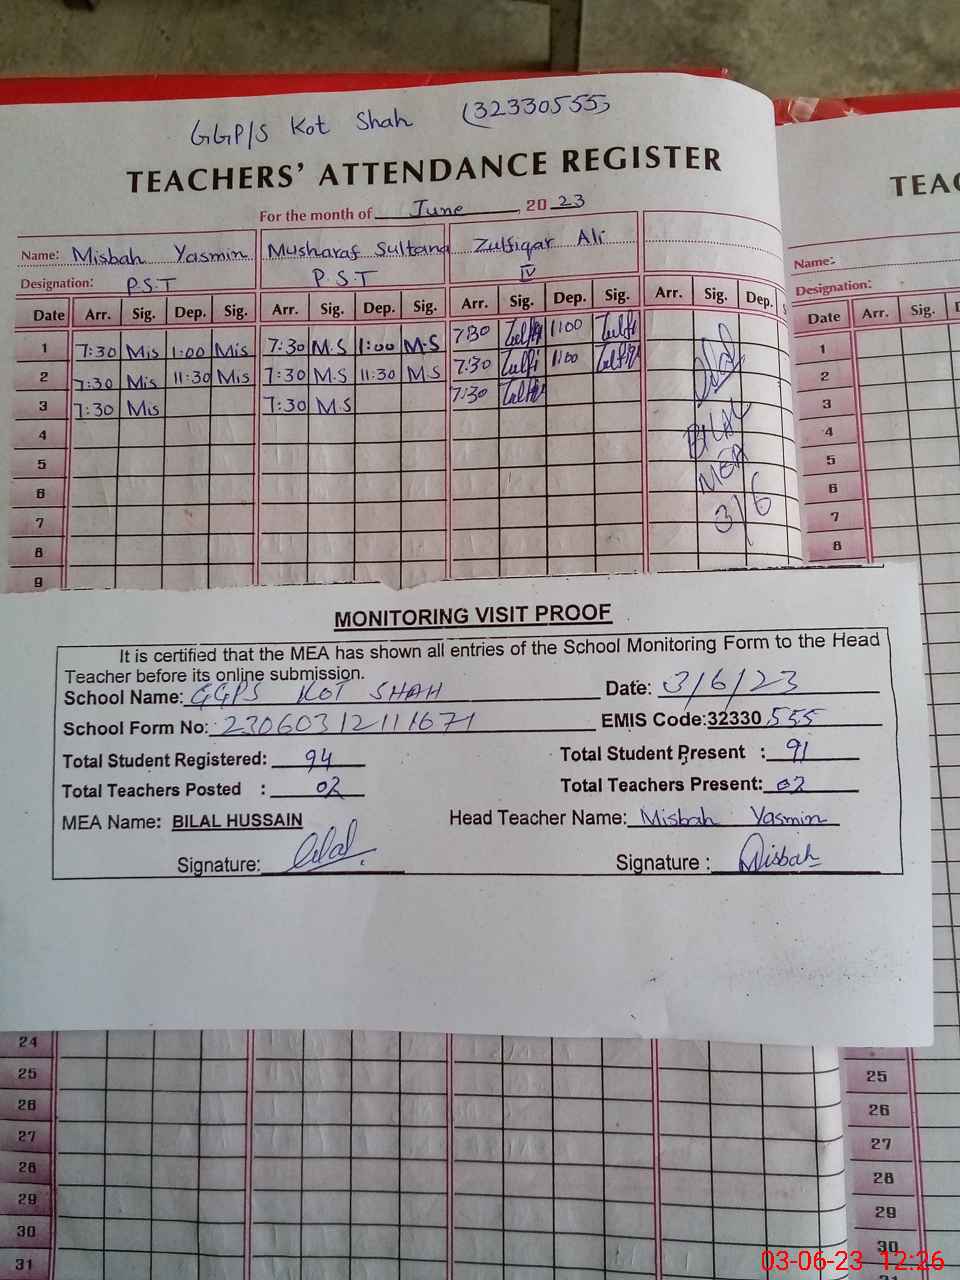 GGP/S Kot Shah (32330555)
TEACHERS' ATTENDANCE REGISTER
For the month of June, 2023
Name: Misbah Yasmin Musharaf Sultana Zulfiqar Ali
Designation: P.S.T P.S.T IV
Date Arr. Sig. Dep. Sig. Arr. Sig. Dep. Sig. Arr. Sig. Dep. Sig. Arr. Sig. Dep.
1 7:30 Mis 1:00 Mis 7:30 M.S 1:00 M.S 7:30 Zulfi 1100 Zulfi
2 7:30 Mis 11:30 Mis 7:30 M.S 11:30 M.S 7:30 Zulfi 1100 Zulfi
3 7:30 Mis 7:30 M.S 7:30 Zulfi
4
5
6
7
8
9
Bilal
BILAL
MEA
3/6
TEAC
Name:
Designation:
Date Arr. Sig. D
1
2
3
4
5
6
7
8
MONITORING VISIT PROOF
It is certified that the MEA has shown all entries of the School Monitoring Form to the Head
Teacher before its online submission.
School Name: GGPS KOT SHAH Date: 3/6/23
School Form No: 23060312111671 EMIS Code:32330 555
Total Student Registered: 94 Total Student Present : 91
Total Teachers Posted : 02 Total Teachers Present: 02
MEA Name: BILAL HUSSAIN Head Teacher Name: Misbah Yasmin
Signature: Bilal Signature : Misbah
24
25
26
27
28
29
30
31
25
26
27
28
29
30
03-06-23 12:26